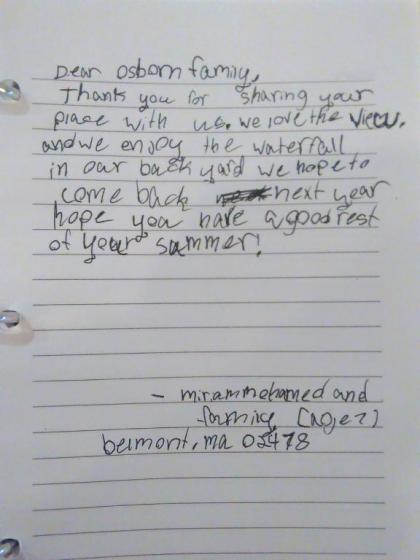 Dear osborn family,
Thank you for sharing your
place with us. we love the view.
and we enjoy the waterfall
in our back yard we hope to
come back next year
hope you have a good rest
of your summer!
- miriam mohamed and
family [age 7]
belmont, ma 02478